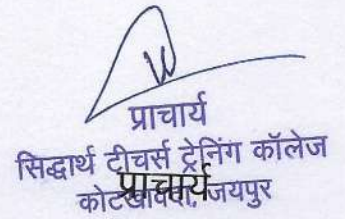 प्राचार्य
सिद्धार्थ टीचर्स ट्रेनिंग कॉलेज
कोटखावदा, जयपुर
प्राचार्य